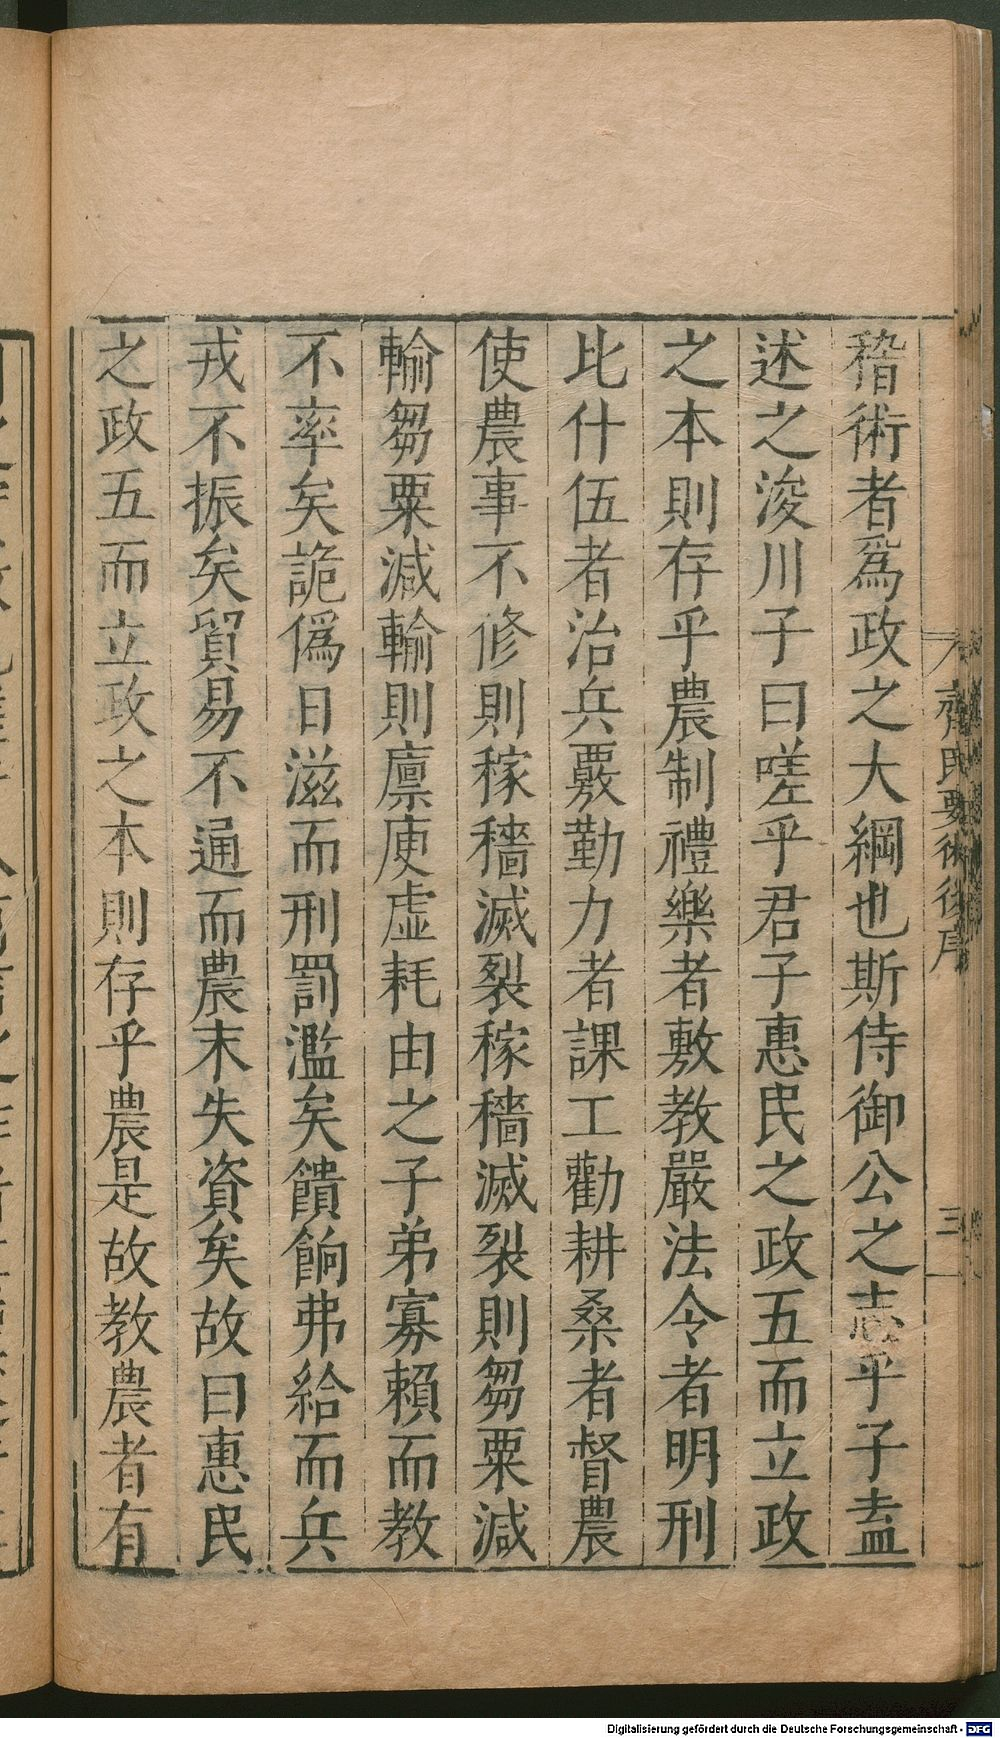 稽術者爲政之大綱也斯侍御公之志乎子盍
述之浚川子曰嗟乎君子惠民之政五而立政
之本則存乎農制禮樂者敷教嚴法令者明刑
比什伍者治兵覈勤力者課工勸耕桑者督農
使農事不修則稼穡滅裂稼穡滅裂則芻粟減
輸芻粟減輸則廩庾虛耗由之子弟寡賴而教
不率矣詭僞日滋而刑罰濫矣饋餉弗給而兵
戎不振矣貿易不通而農末失資矣故曰惠民
之政五而立政之本則存乎農是故教農者有
齊民要術後序
三
Digitalisierung gefördert durch die Deutsche Forschungsgemeinschaft - DFG